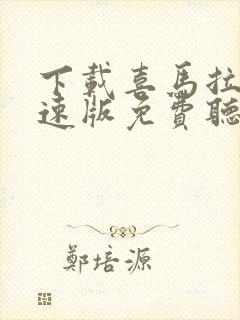 下載喜馬拉
速版免費聽
鄭培源